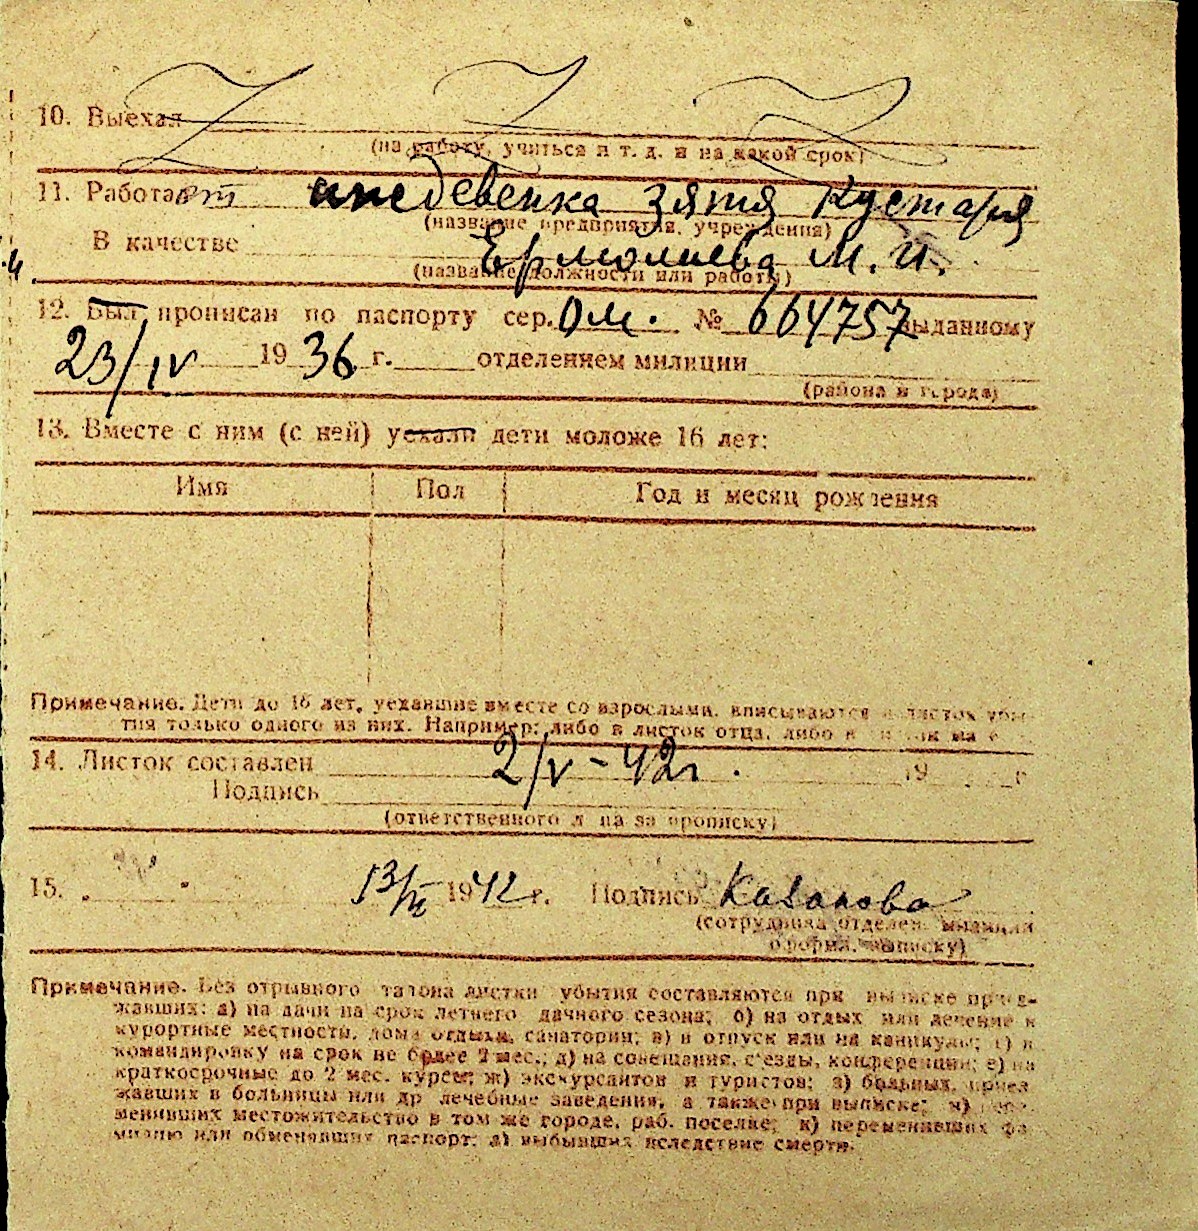 10. Выехал
(на работу, учиться и т. д. и на какой срок)
11. Работает иждевенка зятя Кустаря
(название предприятия, учреждения)
В качестве Ермолаева М. И.
(название должности или работы)
12. Был прописан по паспорту сер. ОМ. № 664757 выданному
23/IV 1936 г. отделением милиции
(района и города)
13. Вместе с ним (с ней) уехали дети моложе 16 лет:
Имя Пол Год и месяц рождения
Примечание. Дети до 16 лет, уехавшие вместе со взрослыми, вписываются в листок убы-
тия только одного из них. Например: либо в листок отца, либо в
14. Листок составлен 2/V-42г. 19 г
Подпись
(ответственного лица за прописку)
15. 13/ 1942 г. Подпись Казакова
(сотрудника отделен. милиции
оформ. выписку)
Примечание. Без отрывного талона листки убытия составляются при выписке приез-
жавших: а) на дачи на срок летнего дачного сезона; б) на отдых или лечение в
курортные местности, дома отдыха, санатории; в) в отпуск или на каникулы; г) в
командировку на срок не более 2 мес.; д) на совещания, с'езды, конференции; е) на
краткосрочные до 2 мес. курсы; ж) экскурсантов и туристов; з) больных, приез
жавших в больницы или др лечебные заведения, а также при выписке: и) пере
менивших местожительство в том же городе, раб. поселке; к) переменивших фа
милию или обменявших паспорт; л) выбывших вследствие смерти.